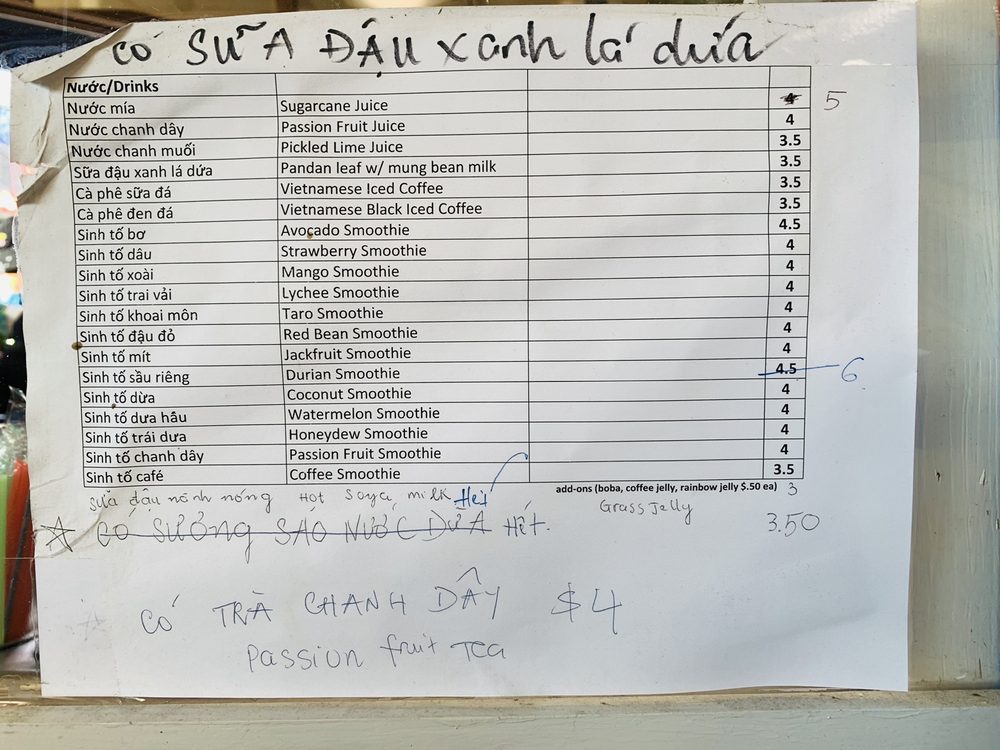 CÓ SỮA ĐẬU xanh lá dứa
Nước/Drinks
Nước mía Sugarcane Juice 4 5
Nước chanh dây Passion Fruit Juice 4
Nước chanh muối Pickled Lime Juice 3.5
Sữa đậu xanh lá dứa Pandan leaf w/ mung bean milk 3.5
Cà phê sữa đá Vietnamese Iced Coffee 3.5
Cà phê đen đá Vietnamese Black Iced Coffee 3.5
Sinh tố bơ Avocado Smoothie 4.5
Sinh tố dâu Strawberry Smoothie 4
Sinh tố xoài Mango Smoothie 4
Sinh tố trai vải Lychee Smoothie 4
Sinh tố khoai môn Taro Smoothie 4
Sinh tố đậu đỏ Red Bean Smoothie 4
Sinh tố mít Jackfruit Smoothie 4
Sinh tố sầu riêng Durian Smoothie 4.5 6
Sinh tố dừa Coconut Smoothie 4
Sinh tố dưa hâu Watermelon Smoothie 4
Sinh tố trái dưa Honeydew Smoothie 4
Sinh tố chanh dây Passion Fruit Smoothie 4
Sinh tố café Coffee Smoothie 3.5
add-ons (boba, coffee jelly, rainbow jelly $.50 ea)
Sữa đậu nành nóng Hot Soya milk Hết 3
Grass Jelly
CÓ SƯƠNG SÁO NƯỚC DỪA HẾT. 3.50
CÓ TRÀ CHANH DÂY $4
Passion fruit TEA